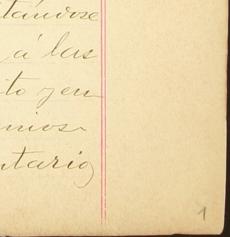 tándose
á las
to y en
mios
ntario
1